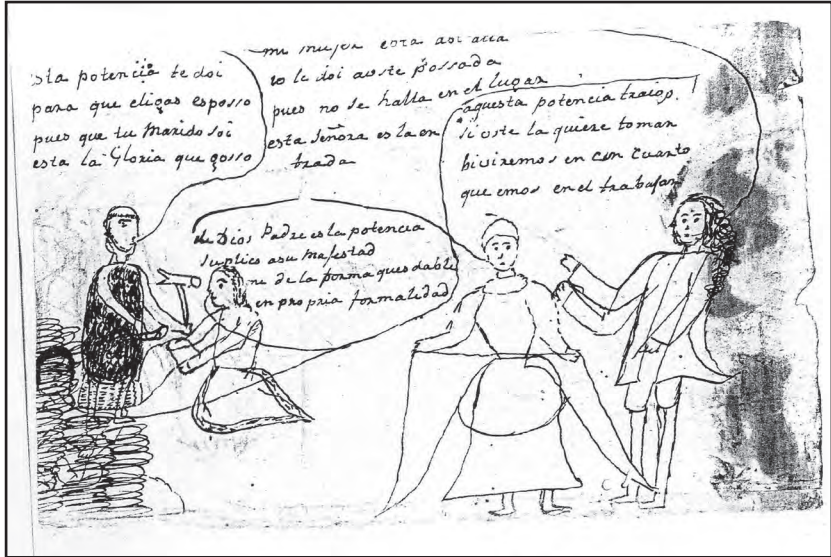 sta potencia te doi
para que eligas esposso
pues que tu marido soi
esta la Gloria que gosso
mi mujer esta
io le doi aoste possada
pues no se halla en el lugar
esta señora es la en
trada
aquesta potencia traigo
si oste la quiere tomar
biviremos en con cuarto
que emos en el trabajar
de Dios Padre es la potencia
suplico asu magestad
ne de la forma ques dable
en propria formalidad